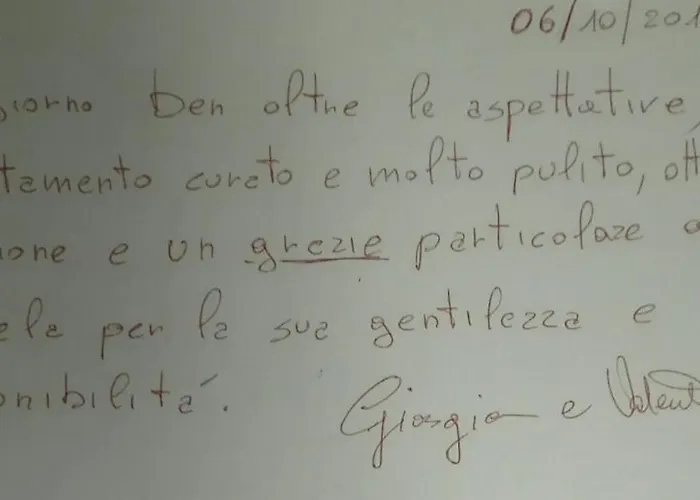 06/10/201
giorno ben oltre le aspettative,
tamento curato e molto pulito, ott
ione e un grazie particolare a
ela per la sua gentilezza e
onibilità.
Giorgia e Valent